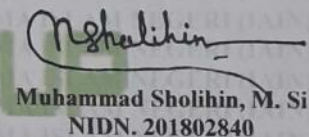 Muhammad Sholihin, M. Si
NIDN. 201802840